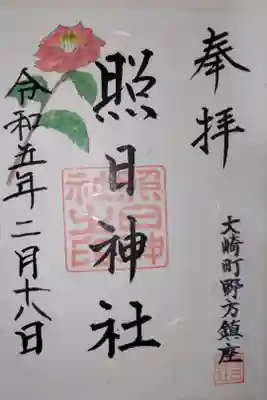 奉拝
大崎町野方鎮座
照日神社
照日神社之印
令和五年二月十八日